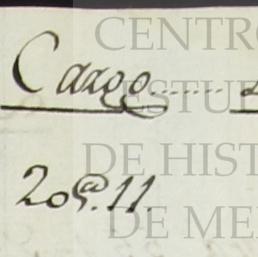 CENTRO
Cargo......
ESTU
DE HIST
20@.11.
DE ME